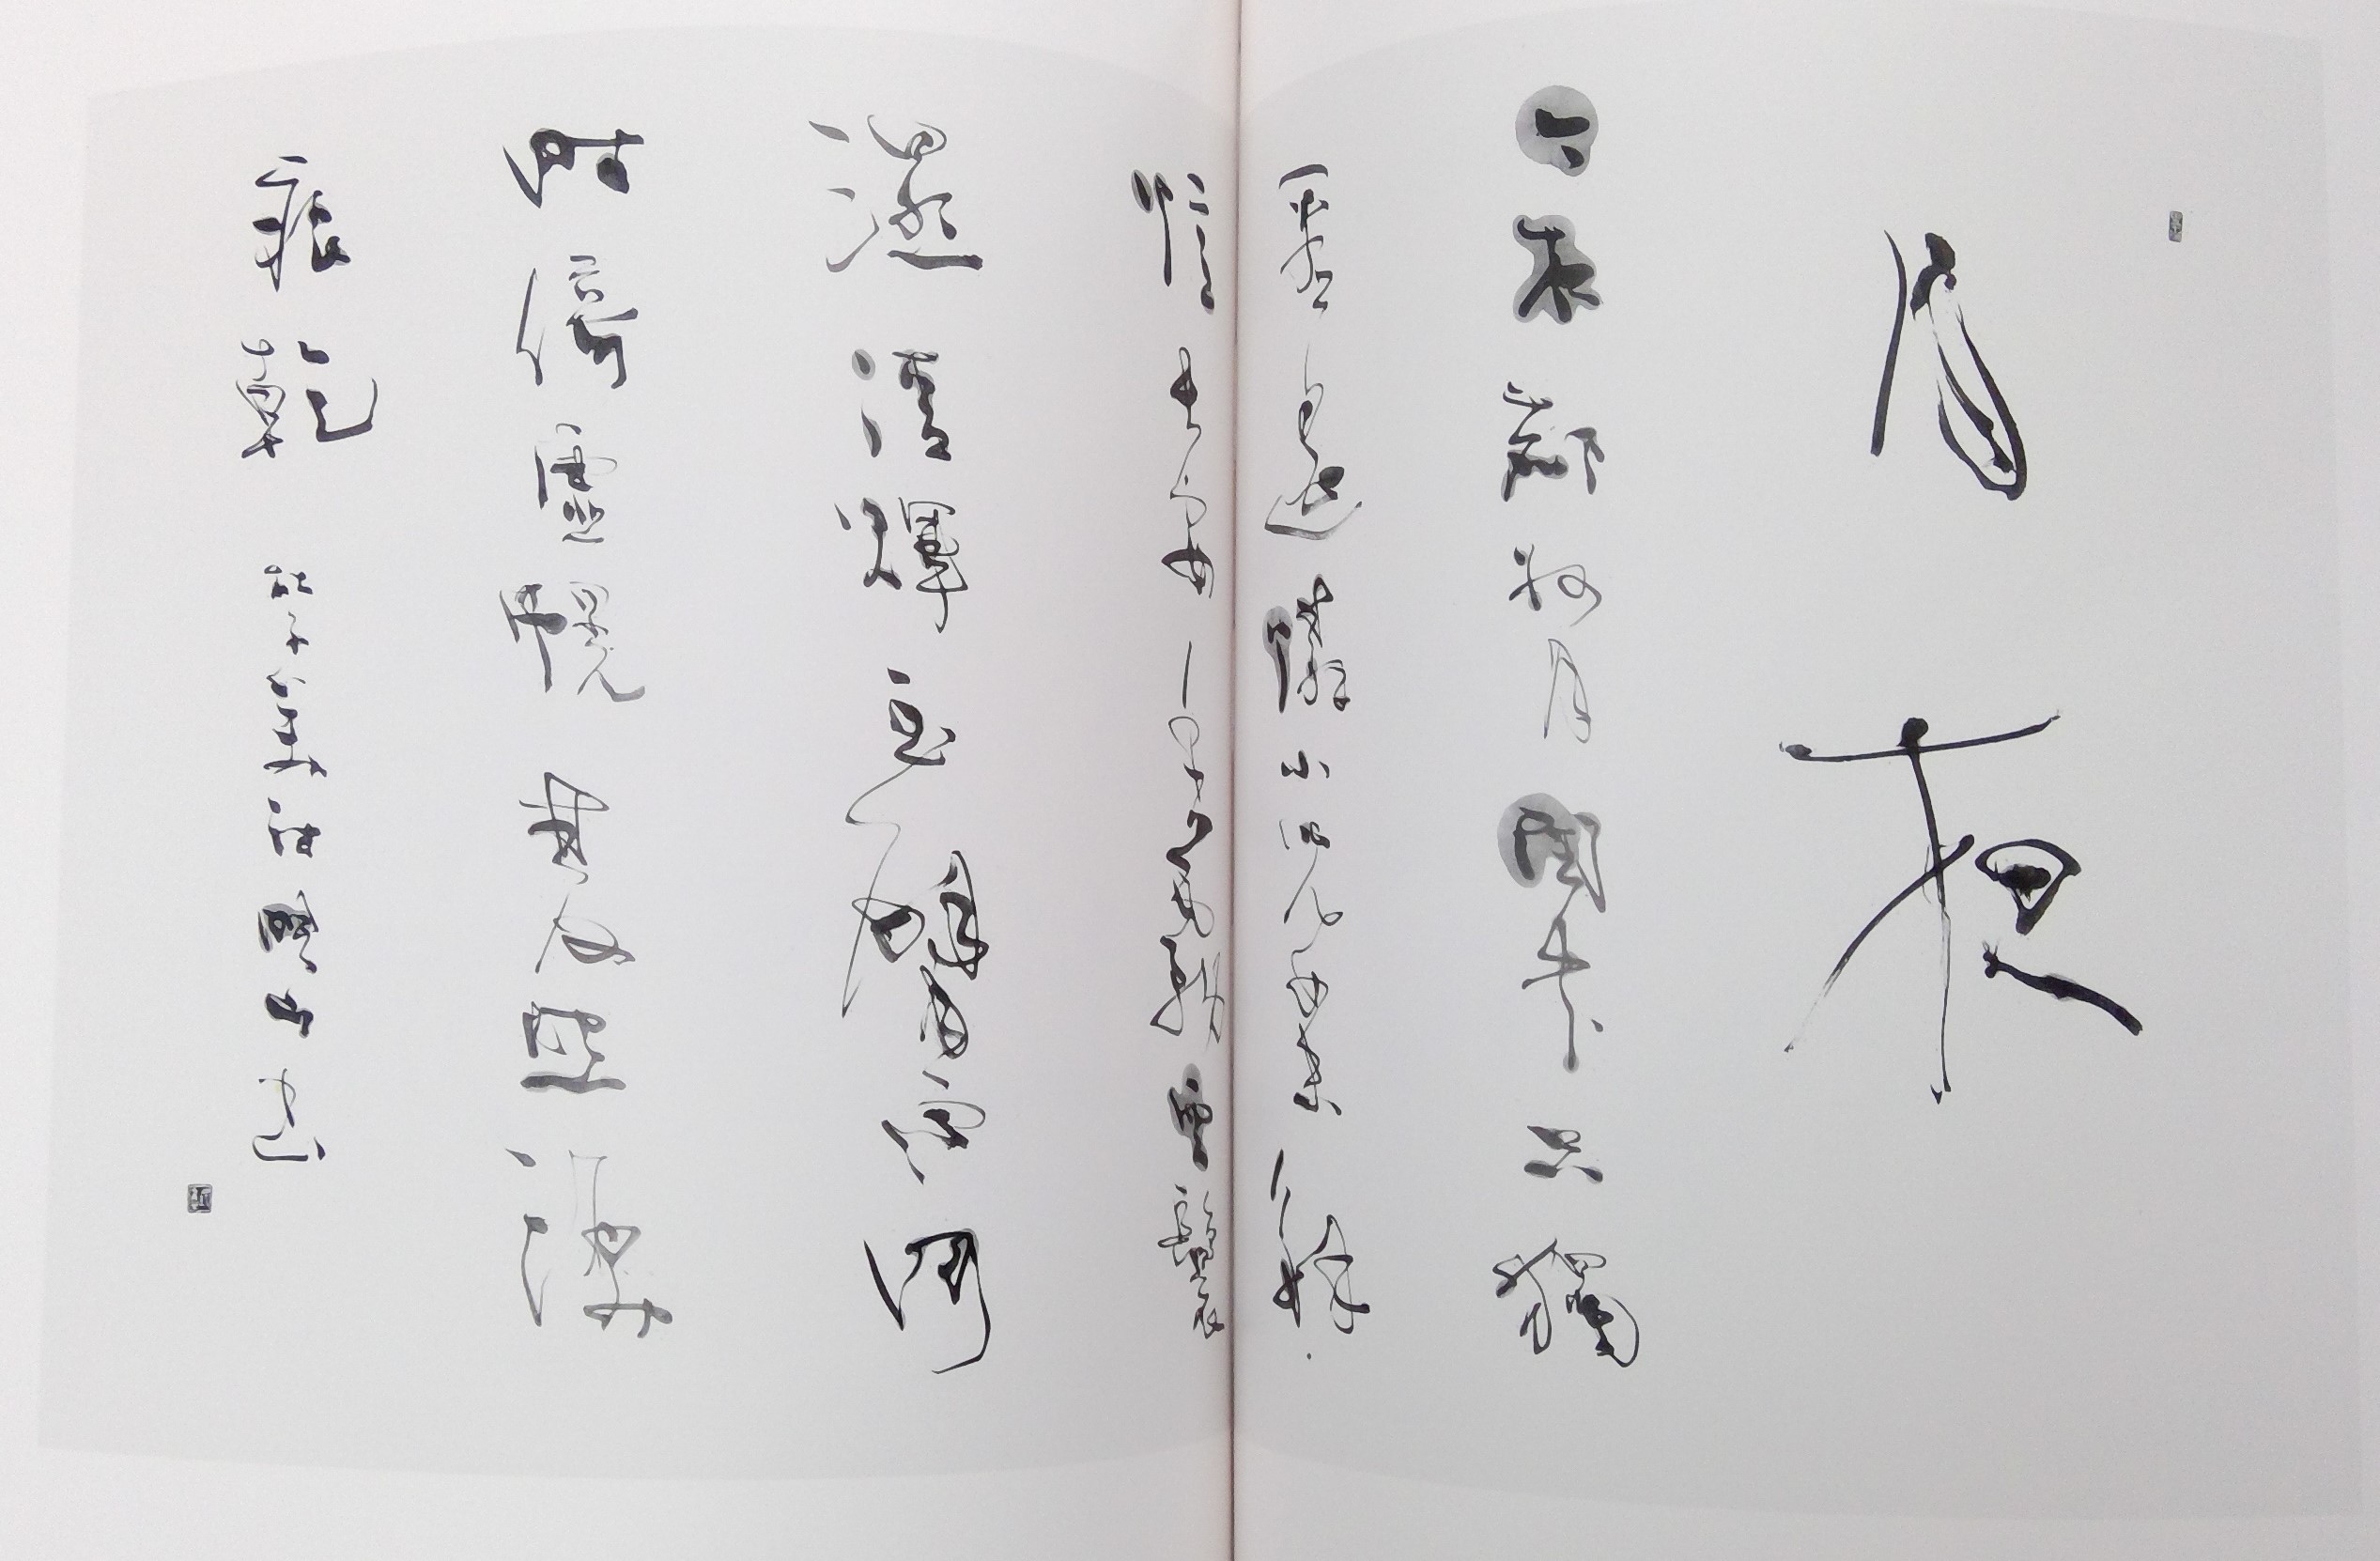 月夜
今夜鄜州月閨中只獨
看遙憐小兒女未解
憶長安香霧雲鬟
濕清輝玉臂寒何
時倚虛幌雙照淚
痕乾 杜子美詩